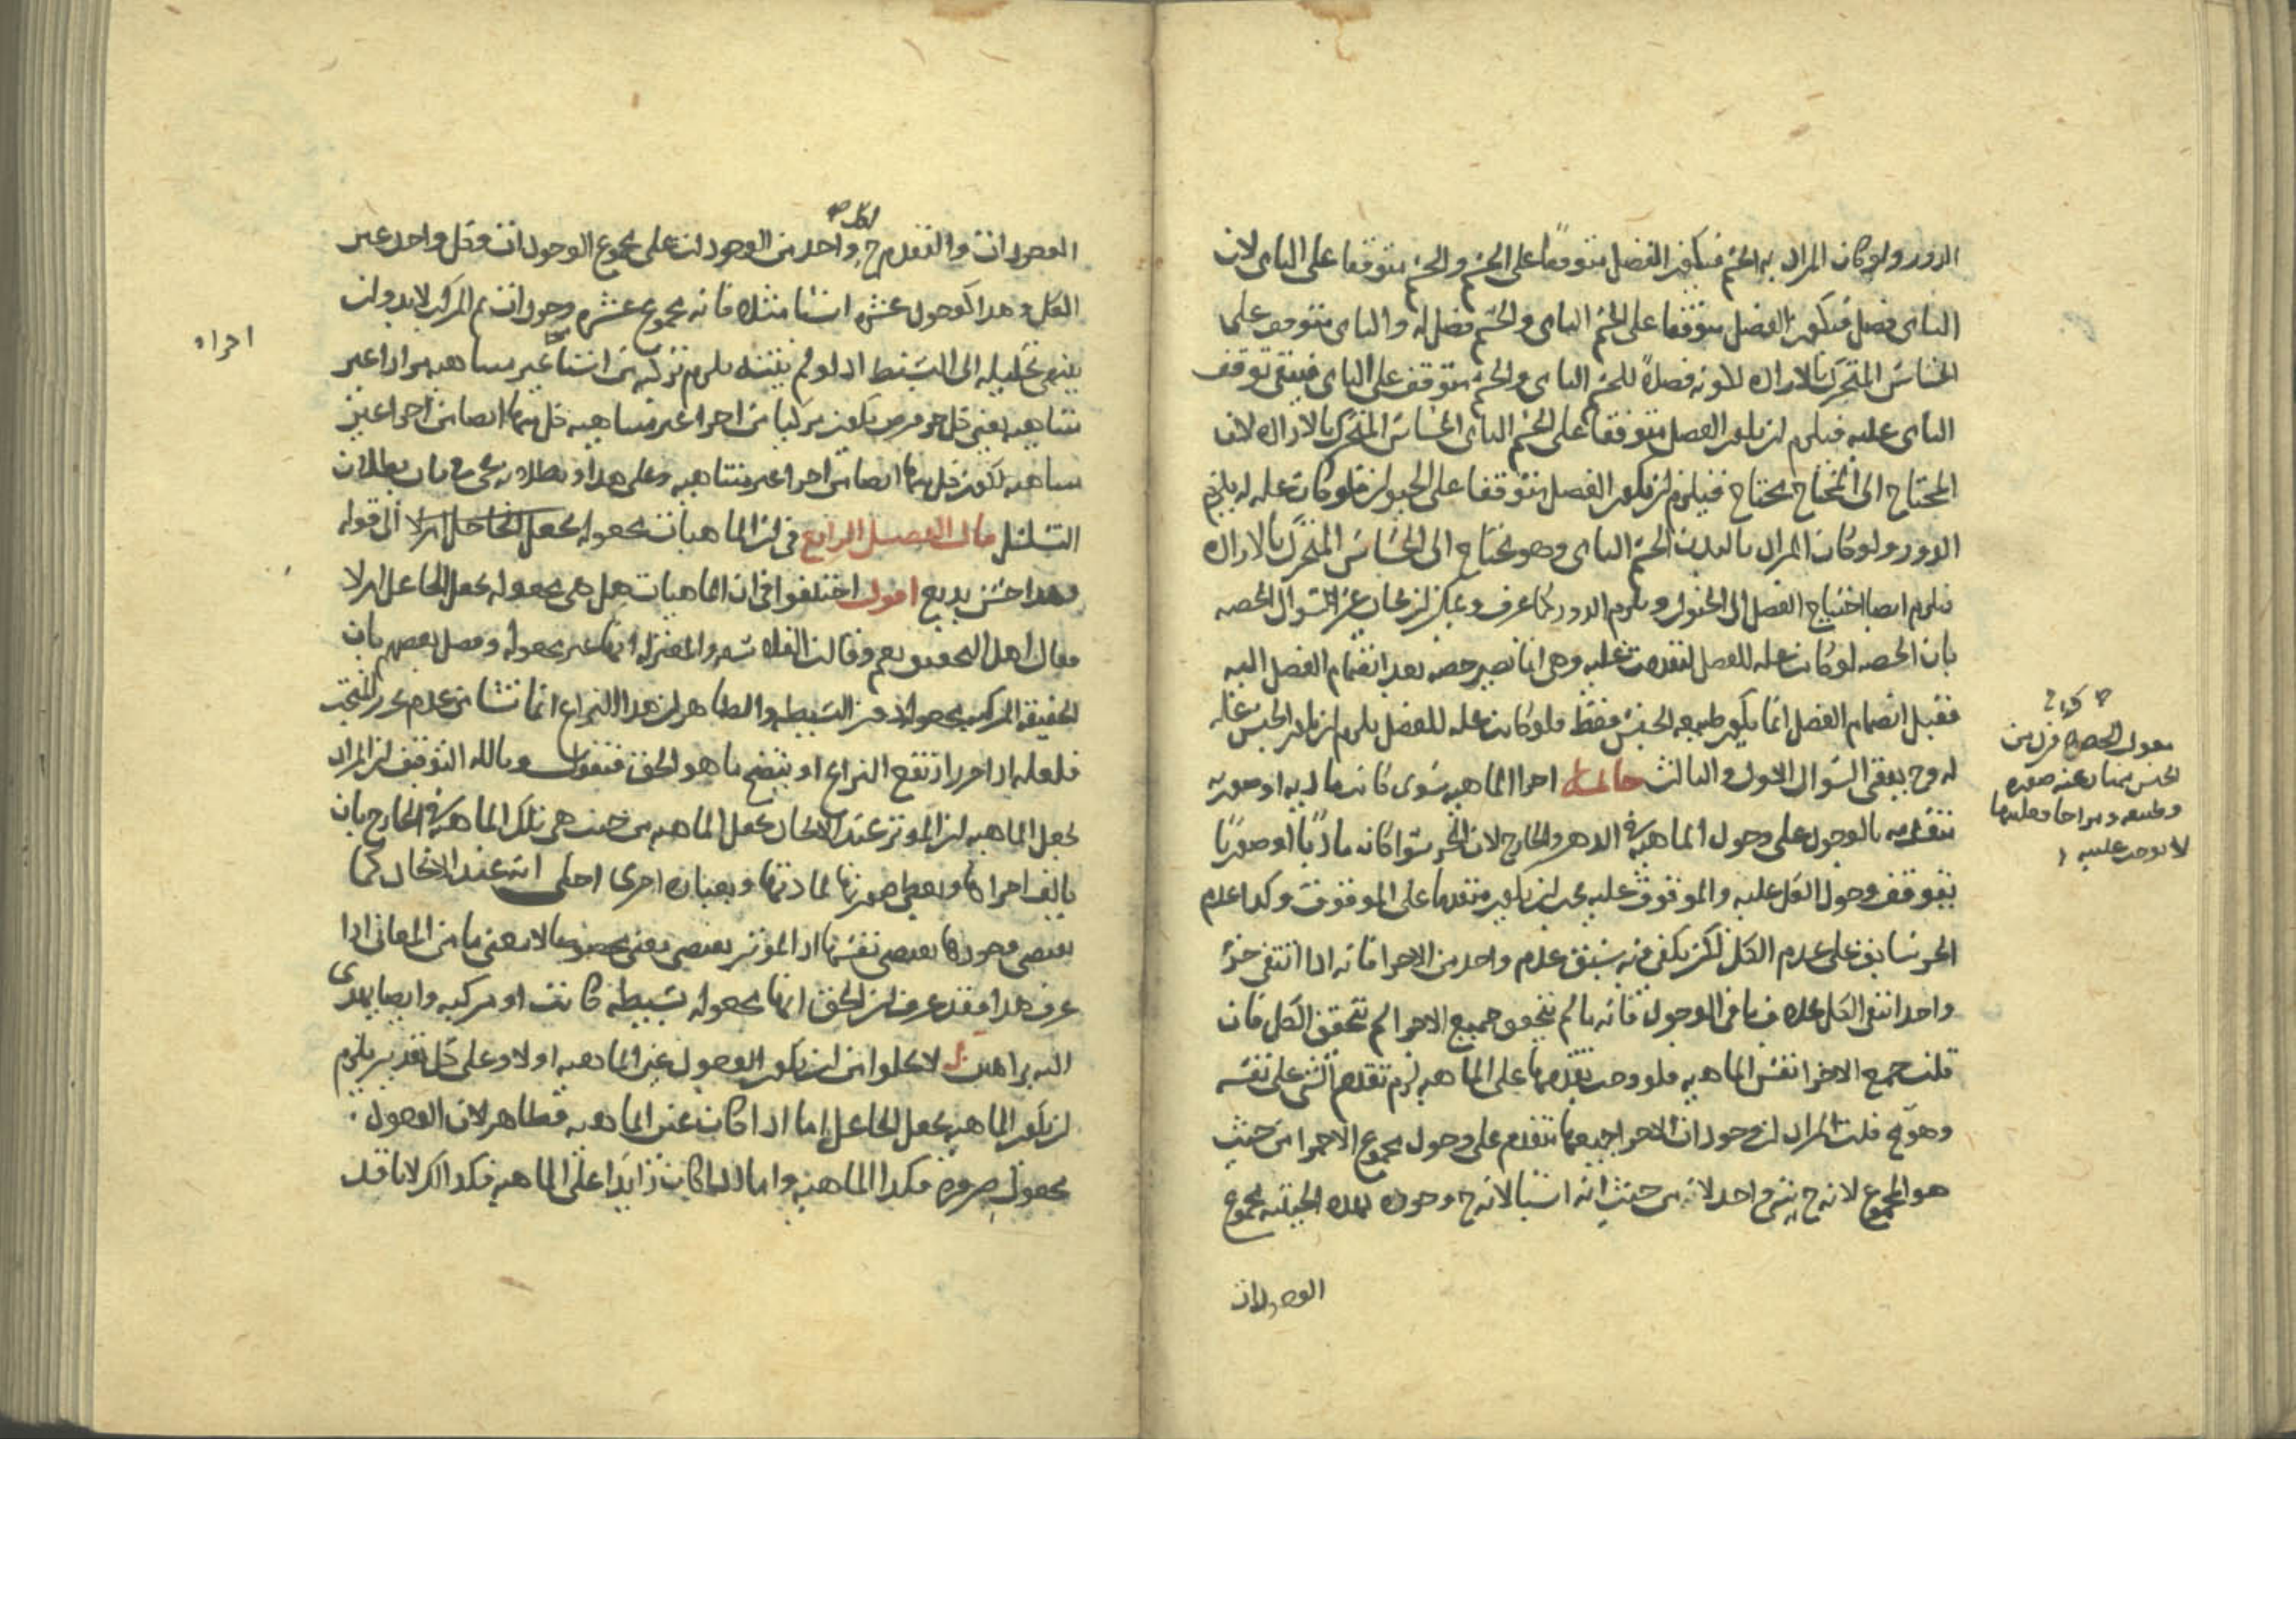 الدور ولو كان المراد به الجسم فيكون الفصل متوقفا على الجسم والجسم متوقفا على النامى لان
النامى فصل فيكون الفصل متوقفا على الجسم النامى والجسم فصل له والنامى متوقف على
الحساس المتحرك بالاراده لكونه فصلا للجسم النامى والجسم متوقف على النامى فيبقى توقف
النامى عليه فيلزم ان يكون الفصل متوقفا على الجسم النامى الحساس المتحرك بالاراده لان
المحتاج الى المحتاج محتاج فيلزم ان يكون الفصل متوقفا على الحيوان فلو كانت عله له يلزم
الدور ولو كان المراد بالبدن الجسم النامى وهو محتاج الى الحساس المتحرك بالاراده
فيلزم ايضا احتياج الفصل الى الحيوان ويلزم الدور كما عرف ويمكن ان يجاب عن السوال الحصه
بان الحصه لو كانت عله للفصل لتقدمت عليه وهى انما تصير حصه بعد انضمام الفصل اليه
فقبل انضمام الفصل انما يكون طبيعه الجنس فقط فلو كانت عله للفصل يلزم ان يكون الجنس عله
له وح يبقى السوال الاول والثالث اجزا الماهيه سوى كانت ماديه او صوريه
متقدمه بالوجود على وجود الماهيه فى الذهن والخارج لان الجزء سوا كان ماديا او صوريا
يتوقف وجود الكل عليه والموقوف عليه يجب ان يكون متقدما على الموقوف وكذا عدم
الجزء سابق على عدم الكل لكن يكفى فيه سبق عدم واحد من الاجزا فانه اذا انتفى جزء
واحد انتفى الكل بخلاف ما فى الوجود فانه ما لم يتحقق جميع الاجزا لم يتحقق الكل فان
قلت جميع الاجزا نفس الماهيه فلو وجب تقدمها على الماهيه لزم تقدم الشى على نفسه
وهو مح قلت المراد ان وجودات الاجزا جميعها متقدم على وجود مجموع الاجزا من حيث
هو المجموع لانه ح شى واحد لا من حيث انه اشيا لانه ح وجوده بهذه الحيثيه مجموع
الوجودات
نقول الحصه فرد من
الجنس
وطبيعه
الوجودات والتقدم ح لكل واحد من الوجودات على مجموع الوجودات وكل واحد غير
الكل وهذا كوجود عشره اشيا مثلا فانه مجموع عشره وجودات ثم المركب لا بد وان
ينتهى تحليله الى البسيط اذ لو لم ينته يلزم تركبه من اشيا غير متناهيه مرارا غير
متناهيه يعنى كل جزء فرض يكون مركبا من اجزا غير متناهيه كل منها ايضا من اجزا غير
متناهيه لكون كل منها ايضا من اجزا غير متناهيه وعلى هذا وبطلانه يجى فى باب بطلان
التسلسل قال الفصل الرابع فى ان الماهيات مجعوله بجعل الجاعل ام لا الى قوله
وهذا حسن بديع اقول اختلفوا فى ان الماهيات هل هى مجعوله بجعل الجاعل ام لا
فقال اهل التحقيق نعم وقالت الفلاسفه والمعتزله انها غير مجعوله وفصل بعضهم بان
الحقيقه المركبه مجعوله دون البسيطه والظاهر ان هذا النزاع انما نشا من عدم تحرير المبحث
فلعله اذا حرر ارتفع النزاع او يتضح ما هو الحق فنقول وبالله التوفيق ان المراد
بجعل الماهيه ان الموثر عند الايجاد يجعل الماهيه من حيث هى تلك الماهيه فى الخارج بان
يالف اجزاها ويعطى صورتها لمادتها وبعباره اخرى اجلى انه عند الايجاد كما
يقتضى وجودها يقتضى نفسها اذ الموثر يقتضى
عرف هذا فقد عرف ان الحق انها مجعوله بسيطه كانت او مركبه وايضا يهدى
اليه براهين لا يخلوا من ان يكون الوجود عين الماهيه اولا وعلى كل تقدير يلزم
ان يكون الماهيه بجعل الجاعل اما اذا كان عين الماهيه فظاهر لان الوجود
مجعول ضروره فكذا الماهيه واما اذا كان زايدا على الماهيه فكذلك لانا قد
اجزاء